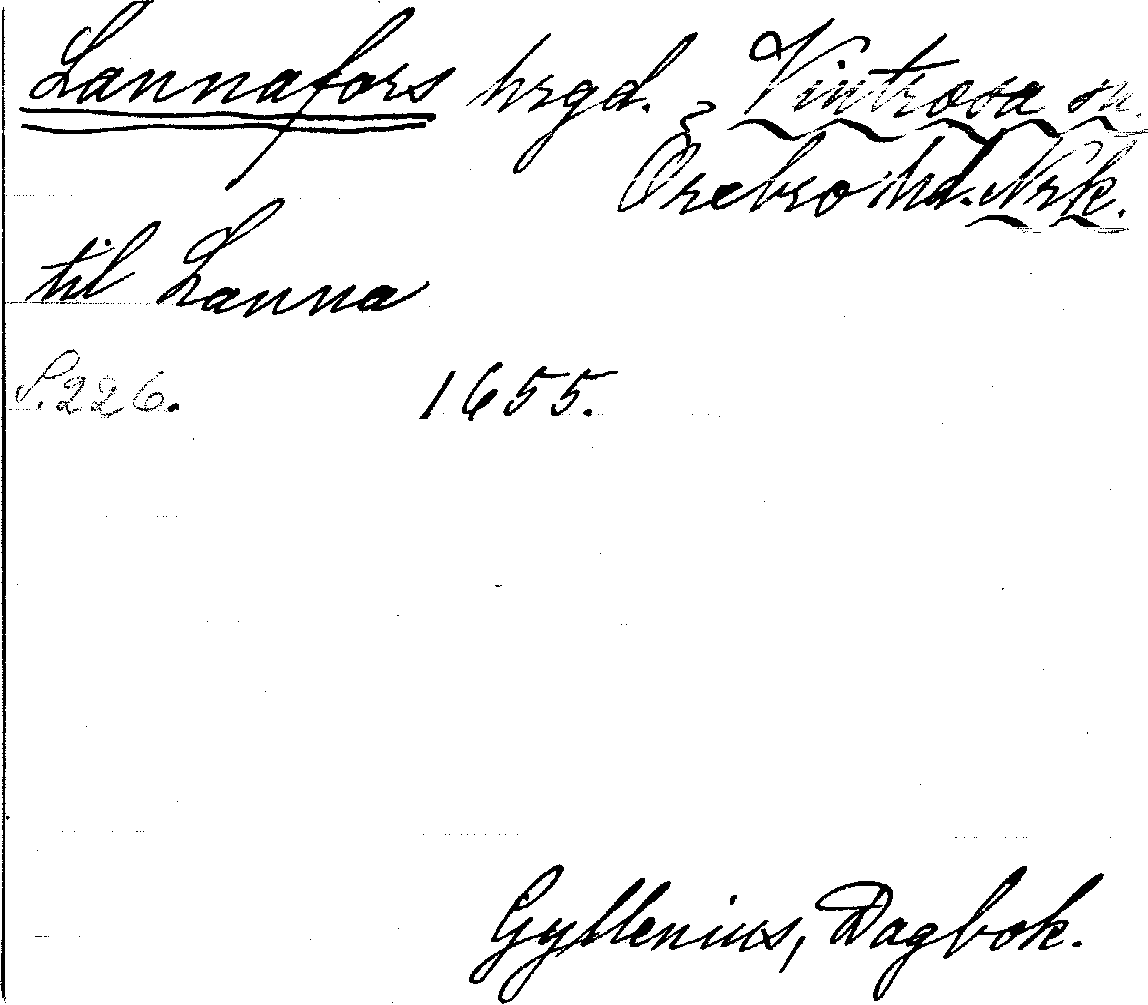 Lannafors hrgd. Vintrosa sn.
Örebro hd. Nrk.
til Lanna
S. 226. 1655.
Gyllenius, Dagbok.